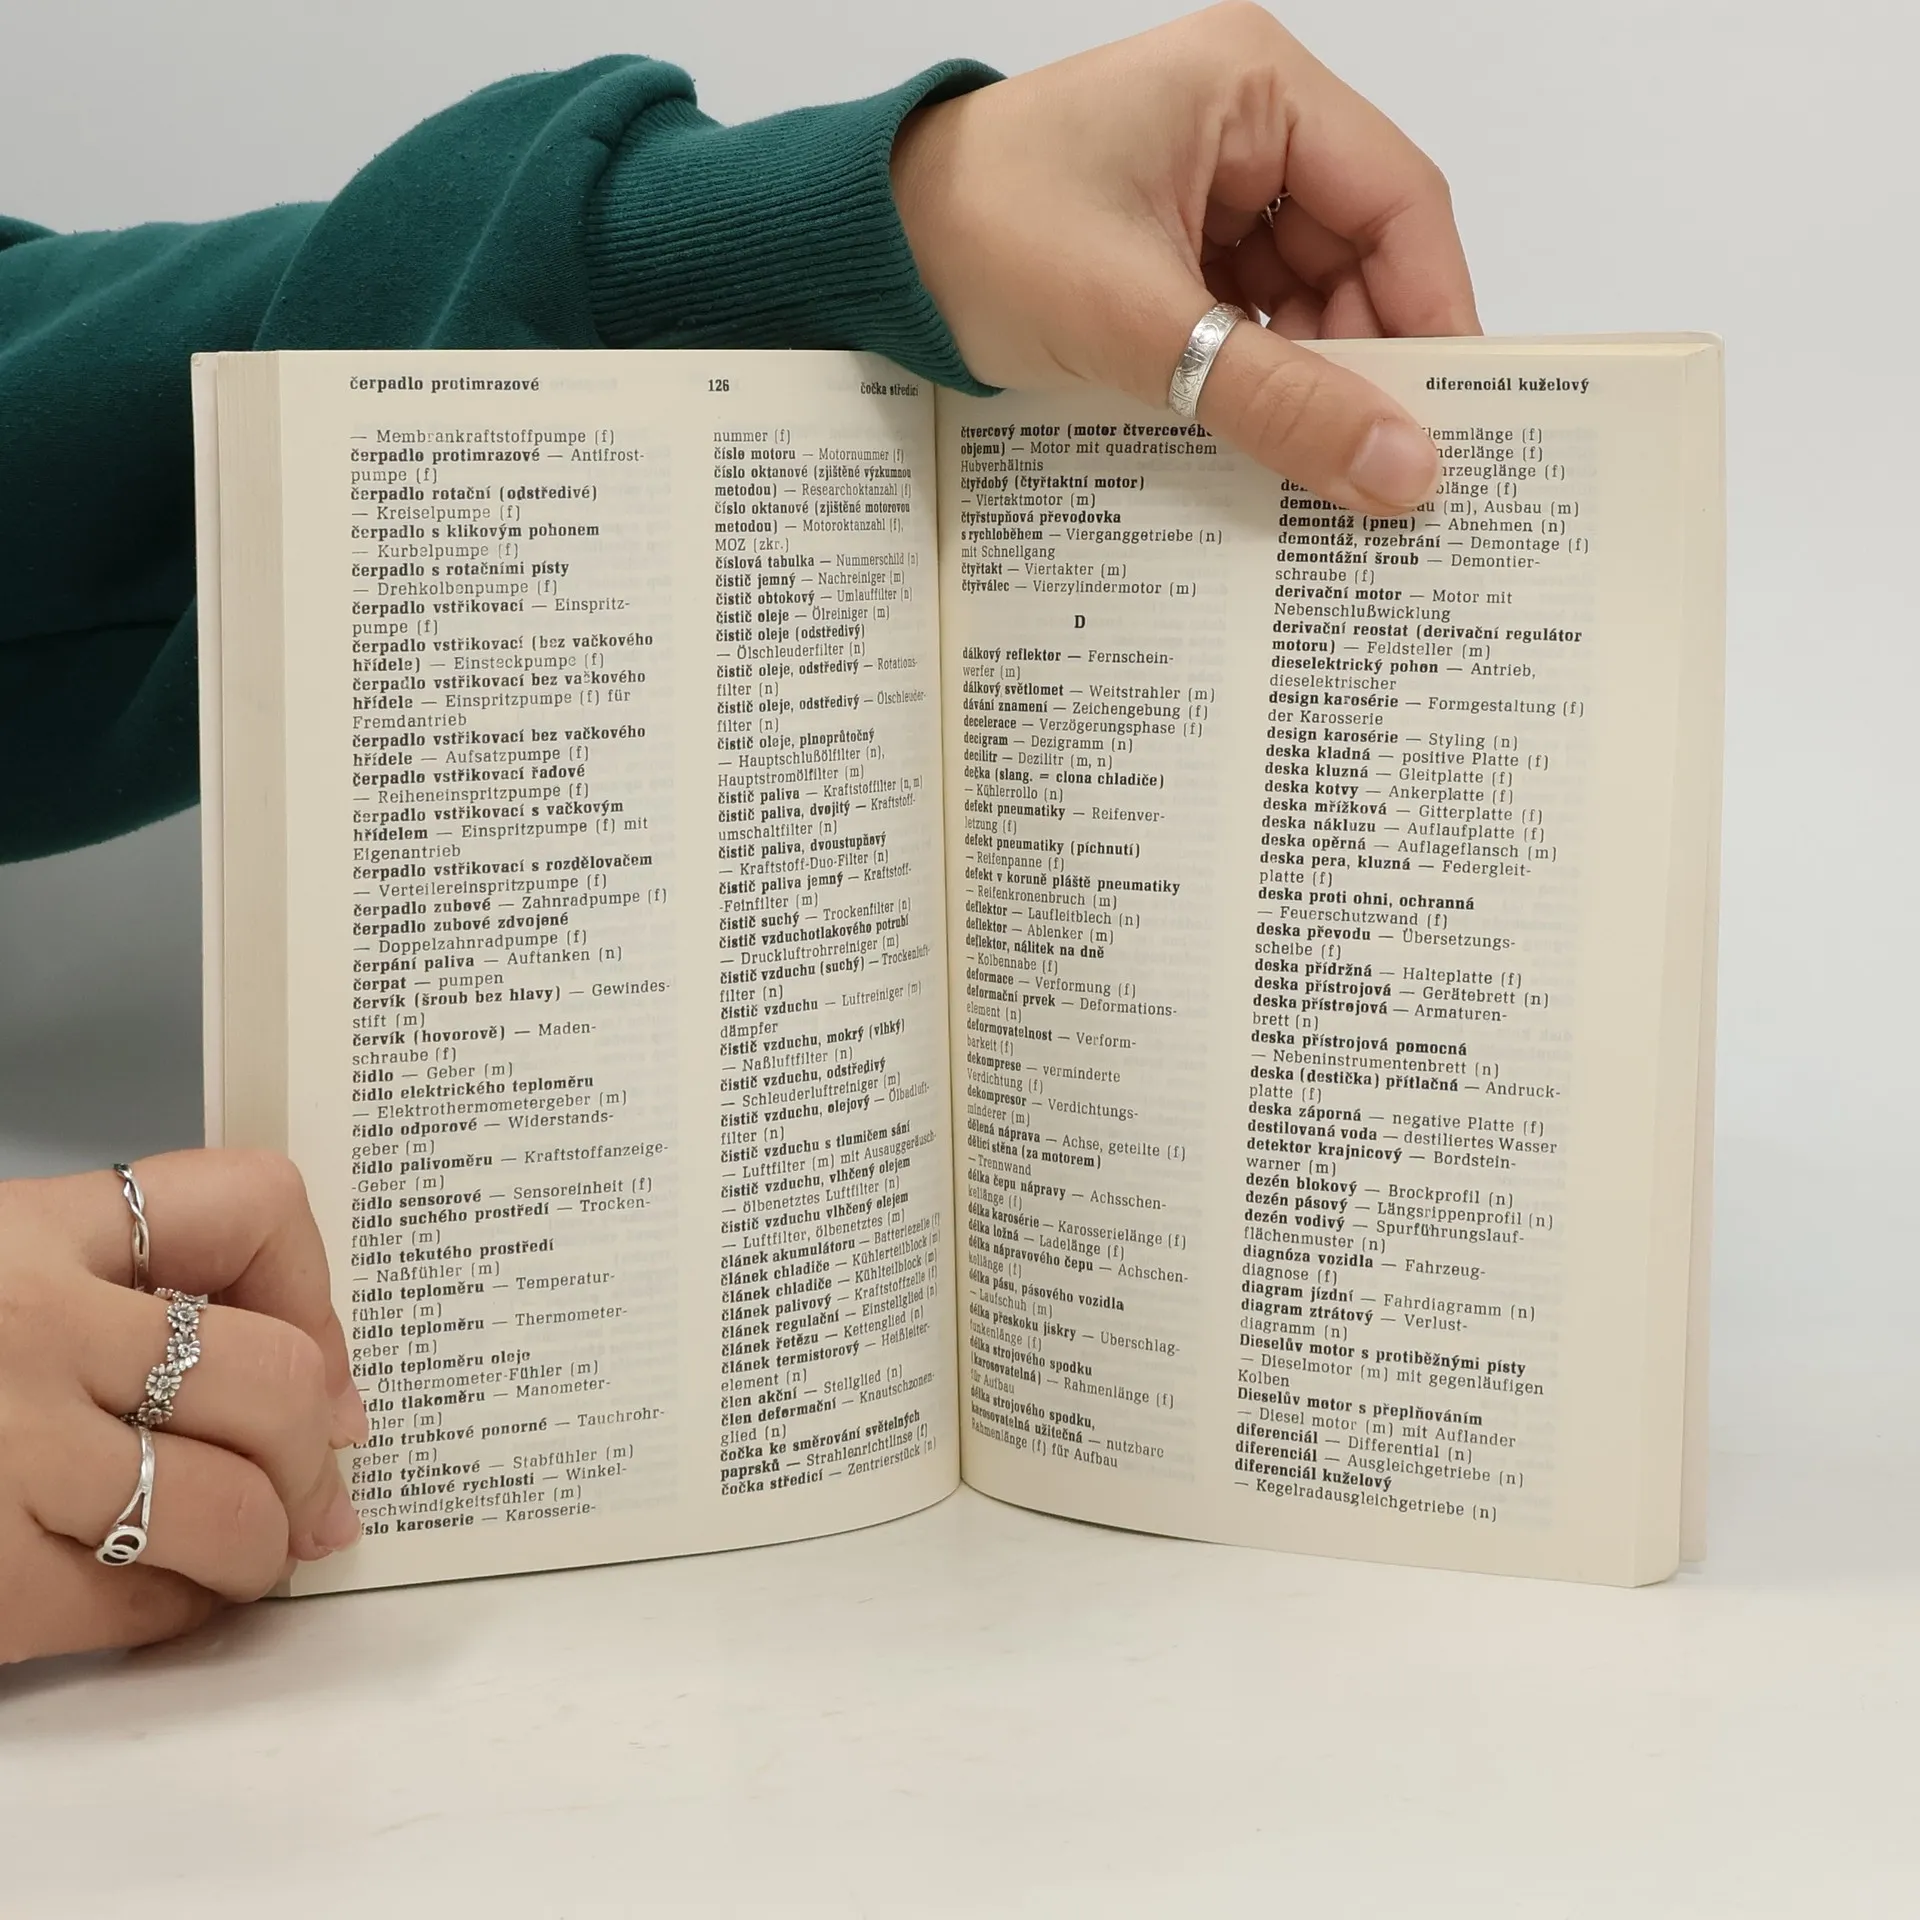 čerpadlo protimrazové
126
čočka středicí
— Membrankraftstoffpumpe (f)
čerpadlo protimrazové — Antifrost-
pumpe (f)
čerpadlo rotační (odstředivé)
— Kreiselpumpe (f)
čerpadlo s klikovým pohonem
— Kurbelpumpe (f)
čerpadlo s rotačními písty
— Drehkolbenpumpe (f)
čerpadlo vstřikovací — Einspritz-
pumpe (f)
čerpadlo vstřikovací (bez vačkového
hřídele) — Einsteckpumpe (f)
čerpadlo vstřikovací bez vačkového
hřídele — Einspritzpumpe (f) für
Fremdantrieb
čerpadlo vstřikovací bez vačkového
hřídele — Aufsatzpumpe (f)
čerpadlo vstřikovací řadové
— Reiheneinspritzpumpe (f)
čerpadlo vstřikovací s vačkovým
hřídelem — Einspritzpumpe (f) mit
Eigenantrieb
čerpadlo vstřikovací s rozdělovačem
— Verteilereinspritzpumpe (f)
čerpadlo zubové — Zahnradpumpe (f)
čerpadlo zubové zdvojené
— Doppelzahnradpumpe (f)
čerpání paliva — Auftanken (n)
čerpat — pumpen
červík (šroub bez hlavy) — Gewindes-
stift (m)
červík (hovorově) — Maden-
schraube (f)
čidlo — Geber (m)
čidlo elektrického teploměru
— Elektrothermometergeber (m)
čidlo odporové — Widerstands-
geber (m)
čidlo palivoměru — Kraftstoffanzeige-
-Geber (m)
čidlo sensorové — Sensoreinheit (f)
čidlo suchého prostředí — Trocken-
fühler (m)
čidlo tekutého prostředí
— Naßfühler (m)
čidlo teploměru — Temperatur-
fühler (m)
čidlo teploměru — Thermometer-
geber (m)
čidlo teploměru oleje
— Ölthermometer-Fühler (m)
idlo tlakoměru — Manometer-
hler (m)
idlo trubkové ponorné — Tauchrohr-
geber (m)
čidlo tyčinkové — Stabfühler (m)
čidlo úhlové rychlosti — Winkel-
eschwindigkeitsfühler (m)
íslo karoserie — Karosserie-
nummer (f)
číslo motoru — Motornummer (f)
číslo oktanové (zjištěné výzkumnou
metodou) — Researchoktanzahl (f)
číslo oktanové (zjištěné motorovou
metodou) — Motoroktanzahl (f),
MOZ (zkr.)
číslová tabulka — Nummerschild (n)
čistič jemný — Nachreiniger (m)
čistič obtokový — Umlauffilter (n)
čistič oleje — Ölreiniger (m)
čistič oleje (odstředivý)
— Ölschleuderfilter (n)
čistič oleje, odstředivý — Rotations-
filter (n)
čistič oleje, odstředivý — Ölschleuder-
filter (n)
čistič oleje, plnoprůtočný
— Hauptschlußölfilter (n),
Hauptstromölfilter (m)
čistič paliva — Kraftstoffilter (n, m)
čistič paliva, dvojitý — Kraftstoff-
umschaltfilter (n)
čistič paliva, dvoustupňový
— Kraftstoff-Duo-Filter (n)
čistič paliva jemný — Kraftstoff-
-Feinfilter (m)
čistič suchý — Trockenfilter (n)
čistič vzduchotlakového potrubí
— Druckluftrohrreiniger (m)
čistič vzduchu (suchý) — Trockenluft-
filter (n)
čistič vzduchu — Luftreiniger (m)
dämpfer
čistič vzduchu, mokrý (vlhký)
— Naßluftfilter (n)
čistič vzduchu, odstředivý
— Schleuderluftreiniger (m)
čistič vzduchu, olejový — Ölbadluft-
filter (n)
čistič vzduchu s tlumičem sání
— Luftfilter (m) mit Ausauggeräusch-
čistič vzduchu, vlhčený olejem
— ölbenetztes Luftfilter (n)
čistič vzduchu vlhčený olejem
— Luftfilter, ölbenetztes (m)
článek akumulátoru — Batteriezelle (f)
článek chladiče — Kühlerteilblock (m)
článek chladiče — Kühlteilblock (m)
článek palivový — Kraftstoffzelle (f)
článek regulační — Einstellglied (n)
článek řetězu — Kettenglied (n)
článek termistorový — Heißleiter-
element (n)
člen akční — Stellglied (n)
člen deformační — Knautschzonen-
glied (n)
čočka ke směrování světelných
paprsků — Strahlenrichtlinse (f)
čočka středicí — Zentrierstück (n)
diferenciál kuželový
čtvercový motor (motor čtvercového
objemu) — Motor mit quadratischem
Hubverhältnis
čtyřdobý (čtyřtaktní motor)
— Viertaktmotor (m)
čtyřstupňová převodovka
s rychloběhem — Vierganggetriebe (n)
mit Schnellgang
čtyřtakt — Viertakter (m)
čtyřválec — Vierzylindermotor (m)
D
dálkový reflektor — Fernschein-
werfer (m)
dálkový světlomet — Weitstrahler (m)
dávání znamení — Zeichengebung (f)
decelerace — Verzögerungsphase (f)
decigram — Dezigramm (n)
decilitr — Dezilitr (m, n)
dečka (slang. = clona chladiče)
— Kühlerrollo (n)
defekt pneumatiky — Reifenver-
letzung (f)
defekt pneumatiky (píchnutí)
— Reifenpanne (f)
defekt v koruně pláště pneumatiky
— Reifenkronenbruch (m)
deflektor — Laufleitblech (n)
deflektor — Ablenker (m)
deflektor, nálitek na dně
— Kolbennabe (f)
deformace — Verformung (f)
deformační prvek — Deformations-
element (n)
deformovatelnost — Verform-
barkeit (f)
dekomprese — verminderte
Verdichtung (f)
dekompresor — Verdichtungs-
minderer (m)
dělená náprava — Achse, geteilte (f)
dělicí stěna (za motorem)
— Trennwand
délka čepu nápravy — Achsschen-
kellänge (f)
délka karosérie — Karosserielänge (f)
délka ložná — Ladelänge (f)
délka nápravového čepu — Achschen-
kellänge (f)
délka pásu, pásového vozidla
— Laufschuh (m)
délka přeskoku jiskry — Uberschlag-
funkenlänge (f)
délka strojového spodku
(karosovatelná) — Rahmenlänge (f)
für Aufbau
délka strojového spodku,
karosovatelná užitečná — nutzbare
Rahmenlänge (f) für Aufbau
lemmlänge (f)
nderlänge (f)
hrzeuglänge (f)
olänge (f)
au (m), Ausbau (m)
demontáž (pneu) — Abnehmen (n)
demontáž, rozebrání — Demontage (f)
demontážní šroub — Demontier-
schraube (f)
derivační motor — Motor mit
Nebenschlußwicklung
derivační reostat (derivační regulátor
motoru) — Feldsteller (m)
dieselektrický pohon — Antrieb,
dieselektrischer
design karosérie — Formgestaltung (f)
der Karosserie
design karosérie — Styling (n)
deska kladná — positive Platte (f)
deska kluzná — Gleitplatte (f)
deska kotvy — Ankerplatte (f)
deska mřížková — Gitterplatte (f)
deska nákluzu — Auflaufplatte (f)
deska opěrná — Auflageflansch (m)
deska pera, kluzná — Federgleit-
platte (f)
deska proti ohni, ochranná
— Feuerschutzwand (f)
deska převodu — Übersetzungs-
scheibe (f)
deska přídržná — Halteplatte (f)
deska přístrojová — Gerätebrett (n)
deska přístrojová — Armaturen-
brett (n)
deska přístrojová pomocná
— Nebeninstrumentenbrett (n)
deska (destička) přítlačná — Andruck-
platte (f)
deska záporná — negative Platte (f)
destilovaná voda — destiliertes Wasser
detektor krajnicový — Bordstein-
warner (m)
dezén blokový — Brockprofil (n)
dezén pásový — Längsrippenprofil (n)
dezén vodivý — Spurführungslauf-
flächenmuster (n)
diagnóza vozidla — Fahrzeug-
diagnose (f)
diagram jízdní — Fahrdiagramm (n)
diagram ztrátový — Verlust-
diagramm (n)
Dieselův motor s protiběžnými písty
— Dieselmotor (m) mit gegenläufigen
Kolben
Dieselův motor s přeplňováním
— Diesel motor (m) mit Auflander
diferenciál — Differential (n)
diferenciál — Ausgleichgetriebe (n)
diferenciál kuželový
— Kegelradausgleichgetriebe (n)